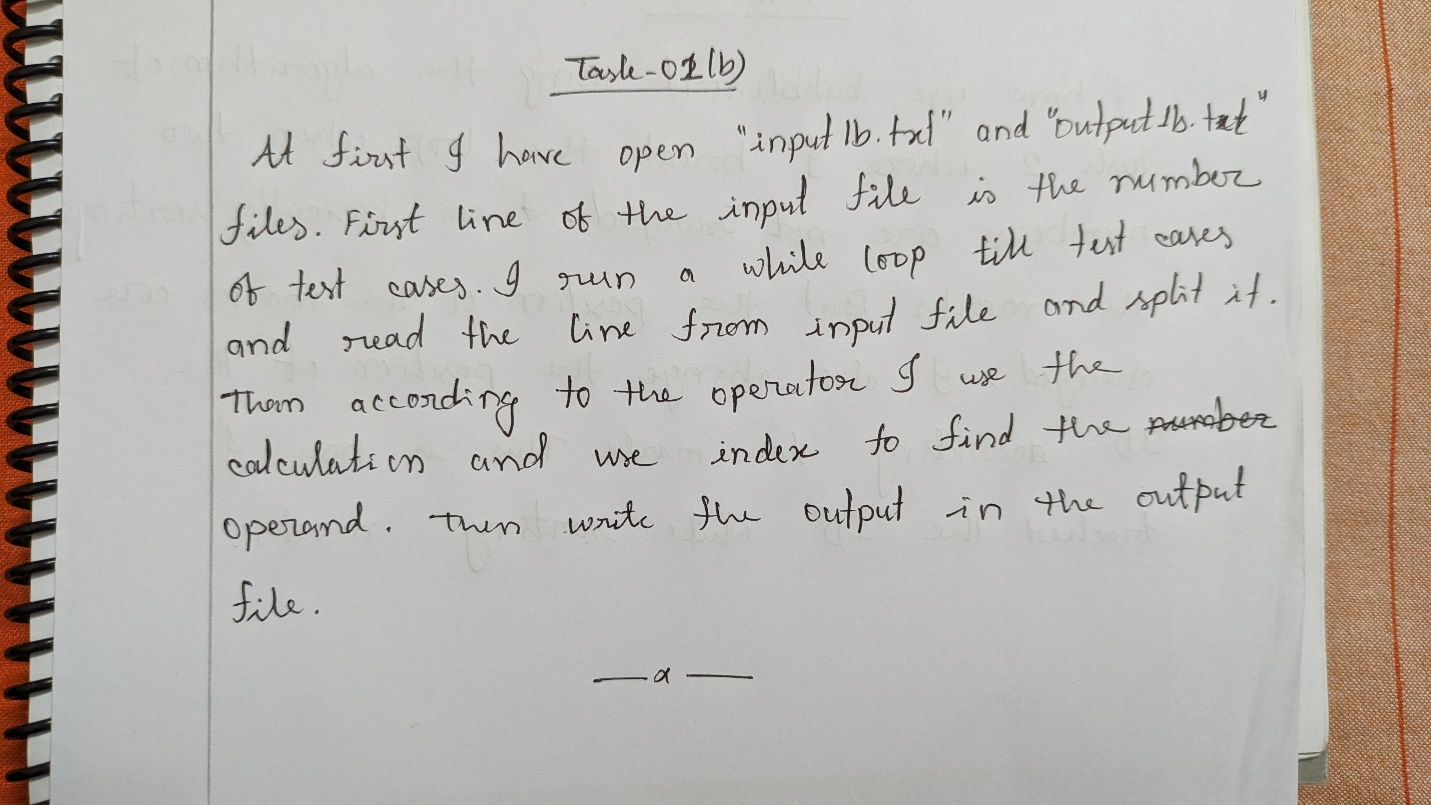 Task-01(b)
At first I have open "input1b.txt" and "output1b.txt"
files. First line of the input file is the number
of test cases. I run a while loop till test cases
and read the line from input file and split it.
Then according to the operator I use the
calculation and use index to find the number
operand. Then write the output in the output
file.